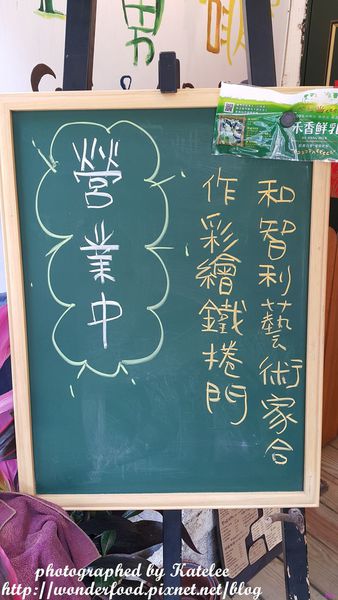 男
禾香鮮乳
和智利藝術家合
作彩繪鐵捲門
營業中
photographed by Katelee
http://wonderfood.pixnet.net/blog